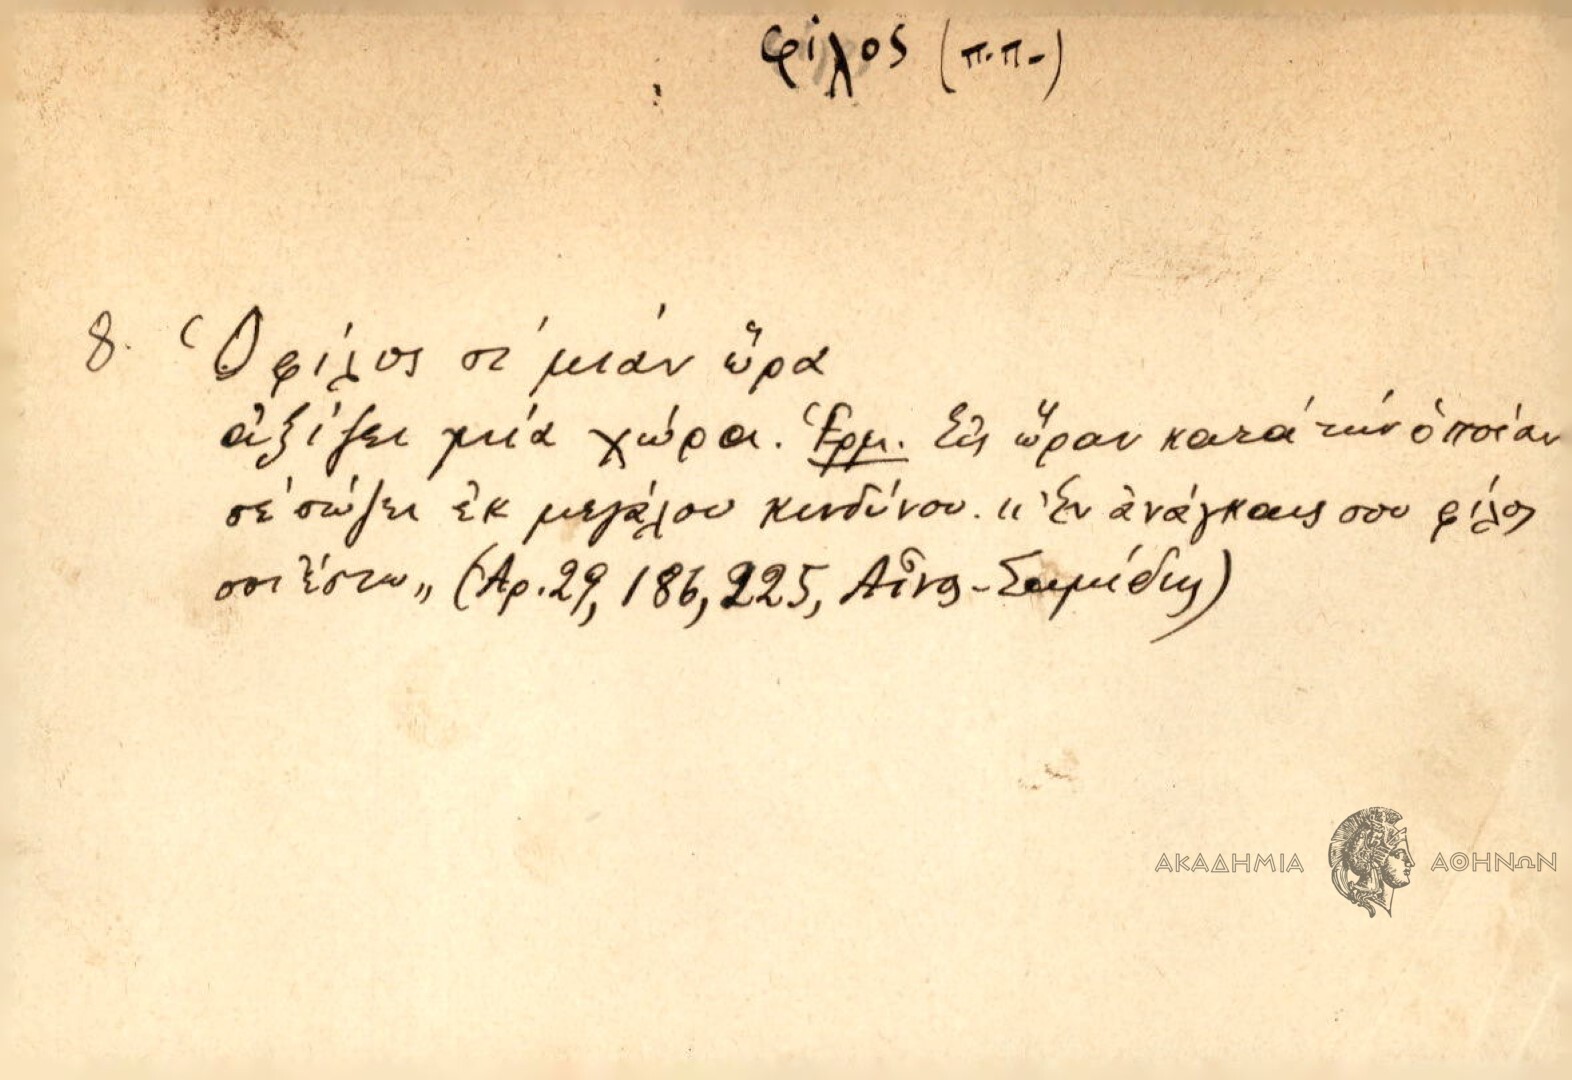 φίλος (π.π-)
8. Ὁ φίλος σὲ μιὰν ὥρα
ἀξίζει μιὰ χώρα. Ἑρμ. Εἰς ὥραν κατὰ τὴν ὁποίαν
σὲ σώζει ἐκ μεγάλου κινδύνου. "Ἐν ἀνάγκαις σου φίλος
σοι ἔστω" (Ἀρ. 29, 186, 225, Αἶνος-
ΑΚΑΔΗΜΙΑ ΑΘΗΝΩΝ